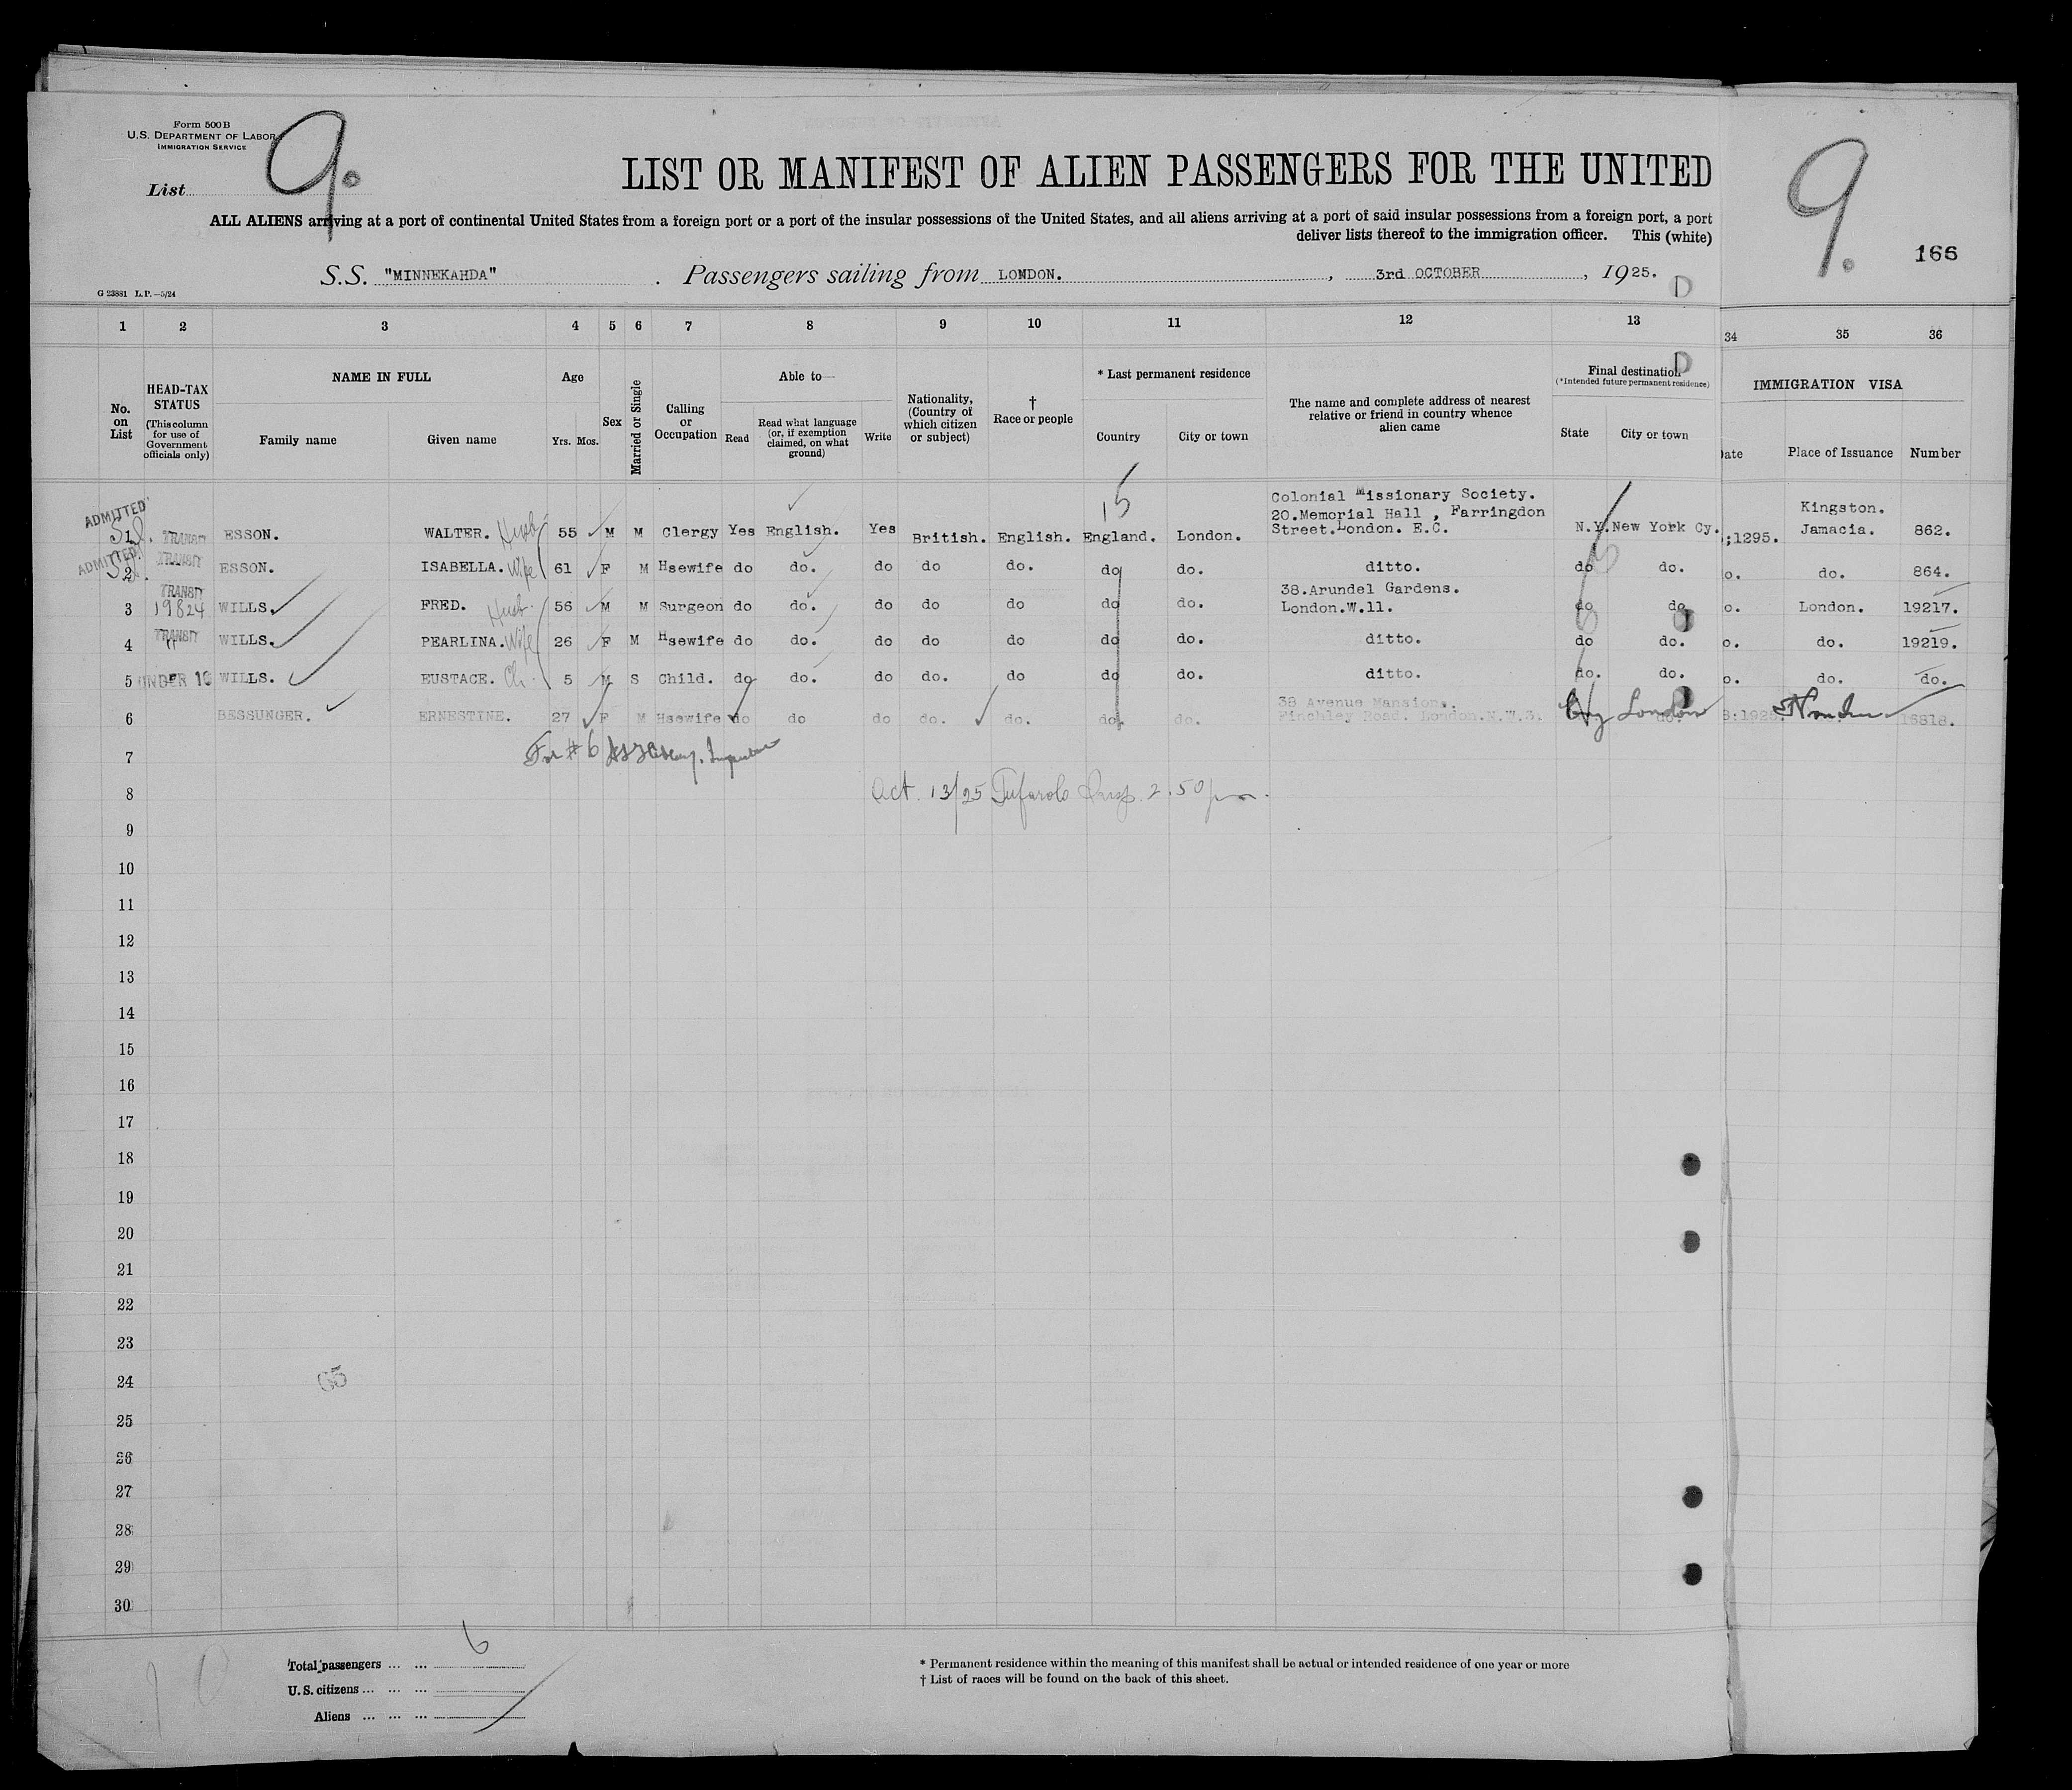 Form 500B
U.S. DEPARTMENT OF LABOR
IMMIGRATION SERVICE
List 9.
LIST OR MANIFEST OF ALIEN PASSENGERS FOR THE UNITED
9.
166
ALL ALIENS arriving at a port of continental United States from a foreign port or a port of the insular possessions of the United States, and all aliens arriving at a port of said insular possessions from a foreign port, a port
deliver lists thereof to the immigration officer. This (white)
S.S. "MINNEKAHDA" . Passengers sailing from LONDON. , 3rd OCTOBER , 1925.
G 23881 L.P.—5/24
1 2 3 4 5 6 7 8 9 10 11 12 13 34 35 36
No. on List
HEAD-TAX STATUS (This column for use of Government officials only)
NAME IN FULL
Family name
Given name
Age
Yrs. Mos.
Sex
Married or Single
Calling or Occupation
Able to—
Read
Read what language (or, if exemption claimed, on what ground)
Write
Nationality, (Country of which citizen or subject)
† Race or people
* Last permanent residence
Country
City or town
The name and complete address of nearest relative or friend in country whence alien came
Final destination
(*Intended future permanent residence)
State
City or town
IMMIGRATION VISA
Date
Place of Issuance
Number
15
ADMITTED 1 TRANSIT ESSON. WALTER. Husb 55 M M Clergy Yes English. Yes British. English. England. London. Colonial Missionary Society. 20.Memorial Hall , Farringdon Street.London. E.C. N.Y. New York Cy. ;1295. Kingston. Jamacia. 862.
ADMITTED 2 TRANSIT ESSON. ISABELLA. Wife 61 F M Hsewife do do. do do do. do do. ditto. do do. o. do. 864.
3 TRANSIT 19824 WILLS. FRED. Husb. 56 M M Surgeon do do. do do do do do. 38.Arundel Gardens. London.W.11. do do o. London. 19217.
4 TRANSIT " WILLS. PEARLINA. Wife 26 F M Hsewife do do. do do do do do. ditto. do do. o. do. 19219.
5 UNDER 16 WILLS. EUSTACE. Ch. 5 M S Child. do do. do do. do do do. ditto. do. do. o. do. do.
6 BESSUNGER. ERNESTINE. 27 F M Hsewife do do do do. do. do. do. 38 Avenue Mansions. Finchley Road. London.N.W.3. Eng London London 16818.
For #6
7
8 Oct. 13/25 Tufarolo Insp. 2.50 pm.
9
10
11
12
13
14
15
16
17
18
19
20
21
22
23
24 65
25
26
27
28
29
30
Total passengers ... ... 6
U.S. citizens ... ... ...
Aliens ... ... ...
* Permanent residence within the meaning of this manifest shall be actual or intended residence of one year or more
† List of races will be found on the back of this sheet.
10